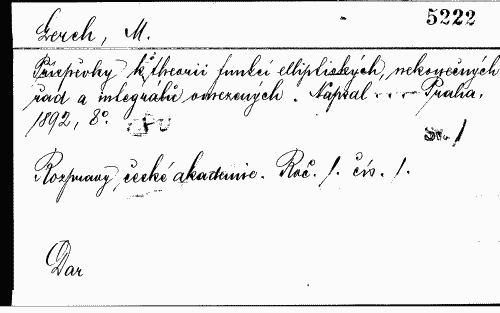 5222
Lerch, M.
Příspěvky k theorii funkcí elliptických, nekonečných
řad a integrálů omezených. Napsal - - - - Praha,
1892, 8°.
Rozpravy české akademie. Roč. 1. čís. 1.
Dar